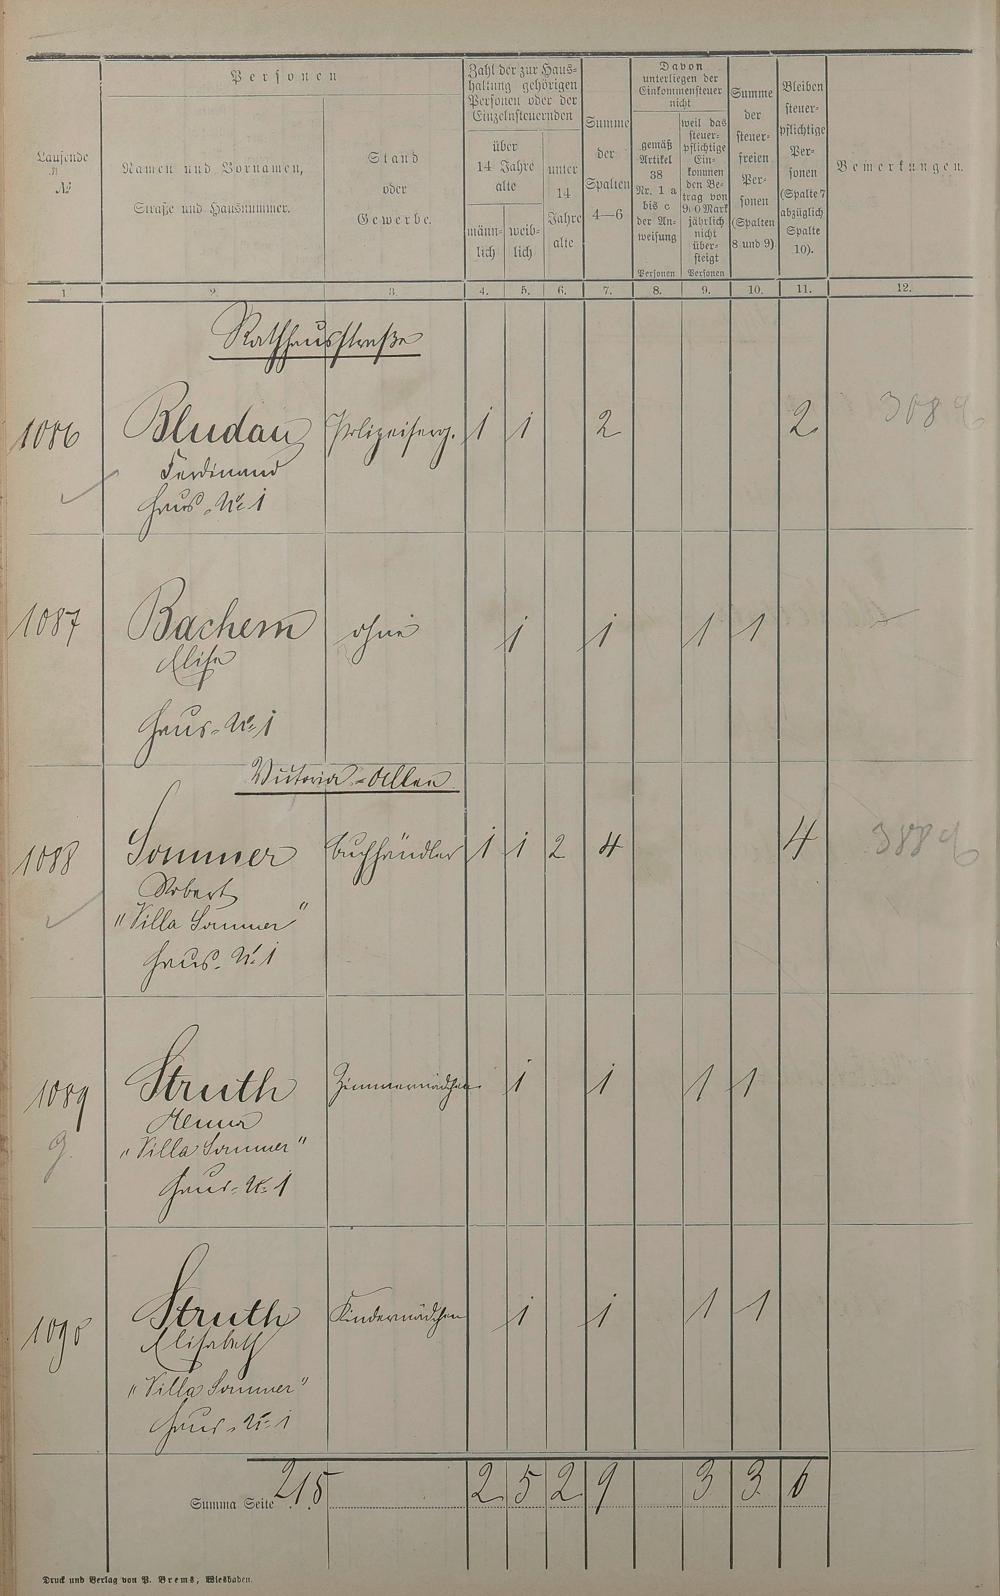 Personen
Laufende
№
Namen und Vornamen,
Straße und Hausnummer.
Stand
oder
Gewerbe.
Zahl der zur Haus-
haltung gehörigen
Personen oder der
Einzelnsteuernden
über
14 Jahre
alte
männ-
lich
weib-
lich
unter
14
Jahre
alte
Summe
der
Spalten
4—6
Davon
unterliegen der
Einkommensteuer
nicht
gemäß
Artikel
38
Nr. 1 a
bis c
der An-
weisung
Personen
weil das
steuer-
pflichtige
Ein-
kommen
den Be-
trag von
900 Mark
jährlich
nicht
über-
steigt
Personen
Summe
der
steuer-
freien
Per-
sonen
(Spalten
8 und 9)
Bleiben
steuer-
pflichtige
Per-
sonen
(Spalte 7
abzüglich
Spalte
10).
Bemerkungen.
1 2. 3. 4. 5. 6. 7. 8. 9. 10. 11. 12.
Rathhausstraße
1086 Bludau Polizeiserg. 1 1 2 2
Ferdinand
Haus-No 1
1087 Bachem ohne 1 1 1 1
Elise
Haus-No 1
Victoria-Allee
1088 Sommer Buchhändler 1 1 2 4 4
Robert
"Villa Sommer"
Haus-N. 1
1089 Struth Zimmermädchen 1 1 1 1
"Villa Sommer"
Haus-N. 1
1090 Struth Kindermädchen 1 1 1 1
Elisabeth
"Villa Sommer"
Haus-N. 1
Summa Seite 215 2 5 2 9 3 3 6
Druck und Verlag von P. Brems, Wiesbaden.